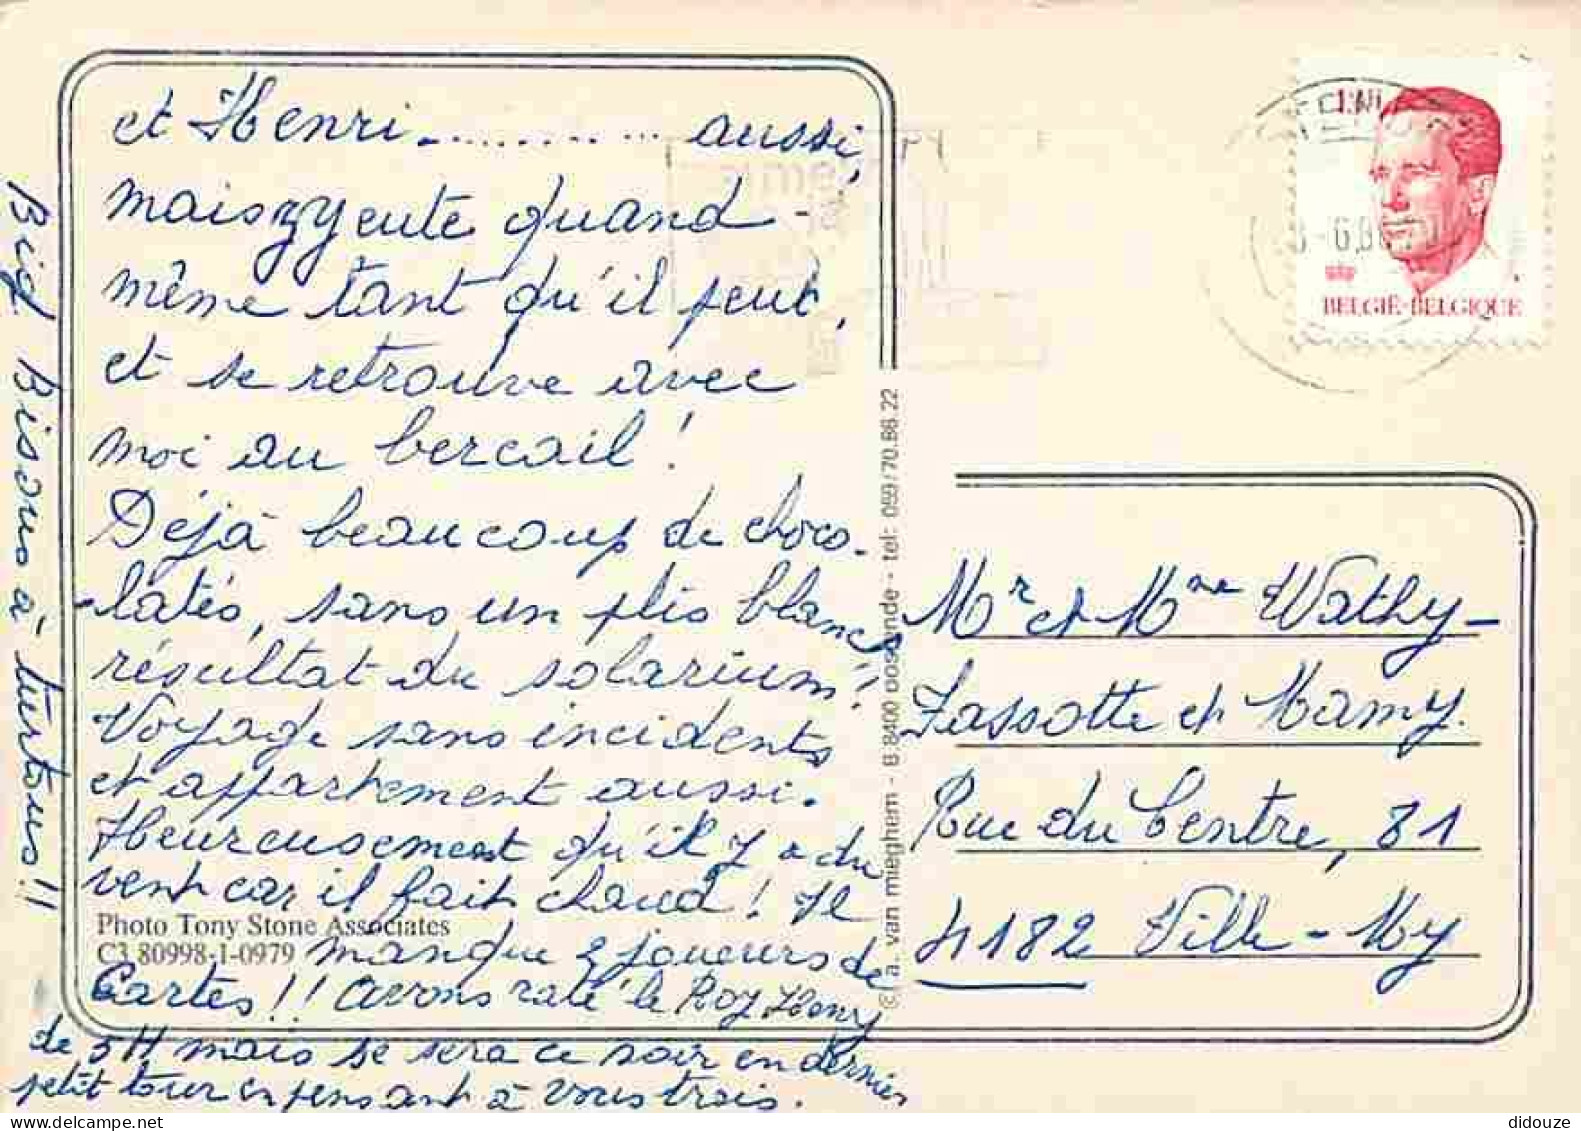 et Henri ............ aussi,
maiszyeute quand
même tant qu'il peut,
et se retrouve avec
moi au bercail !
Déjà beaucoup de choco-
-latés, sans un plis blanc,
résultat du solarium !
Voyage sans incidents
et appartement aussi.
Heureusement qu'il y a du
vent car il fait chaud ! Il
manque 2 joueurs de
Cartes !! Avons raté le Roy Henry
de 5H mais se sera ce soir en dernier
petit tour en pensant à vous trois.
Big Bisous à turtous !!
Photo Tony Stone Associates
C3 80998-1-0979
© a. van mieghem - B 8400 oostende - tel: 059/70.86.22
BELGIË-BELGIQUE
Mr et Mme Wathy-
Lassotte et Mamy.
Rue du Centre, 81
4182 Ville-My
didouze